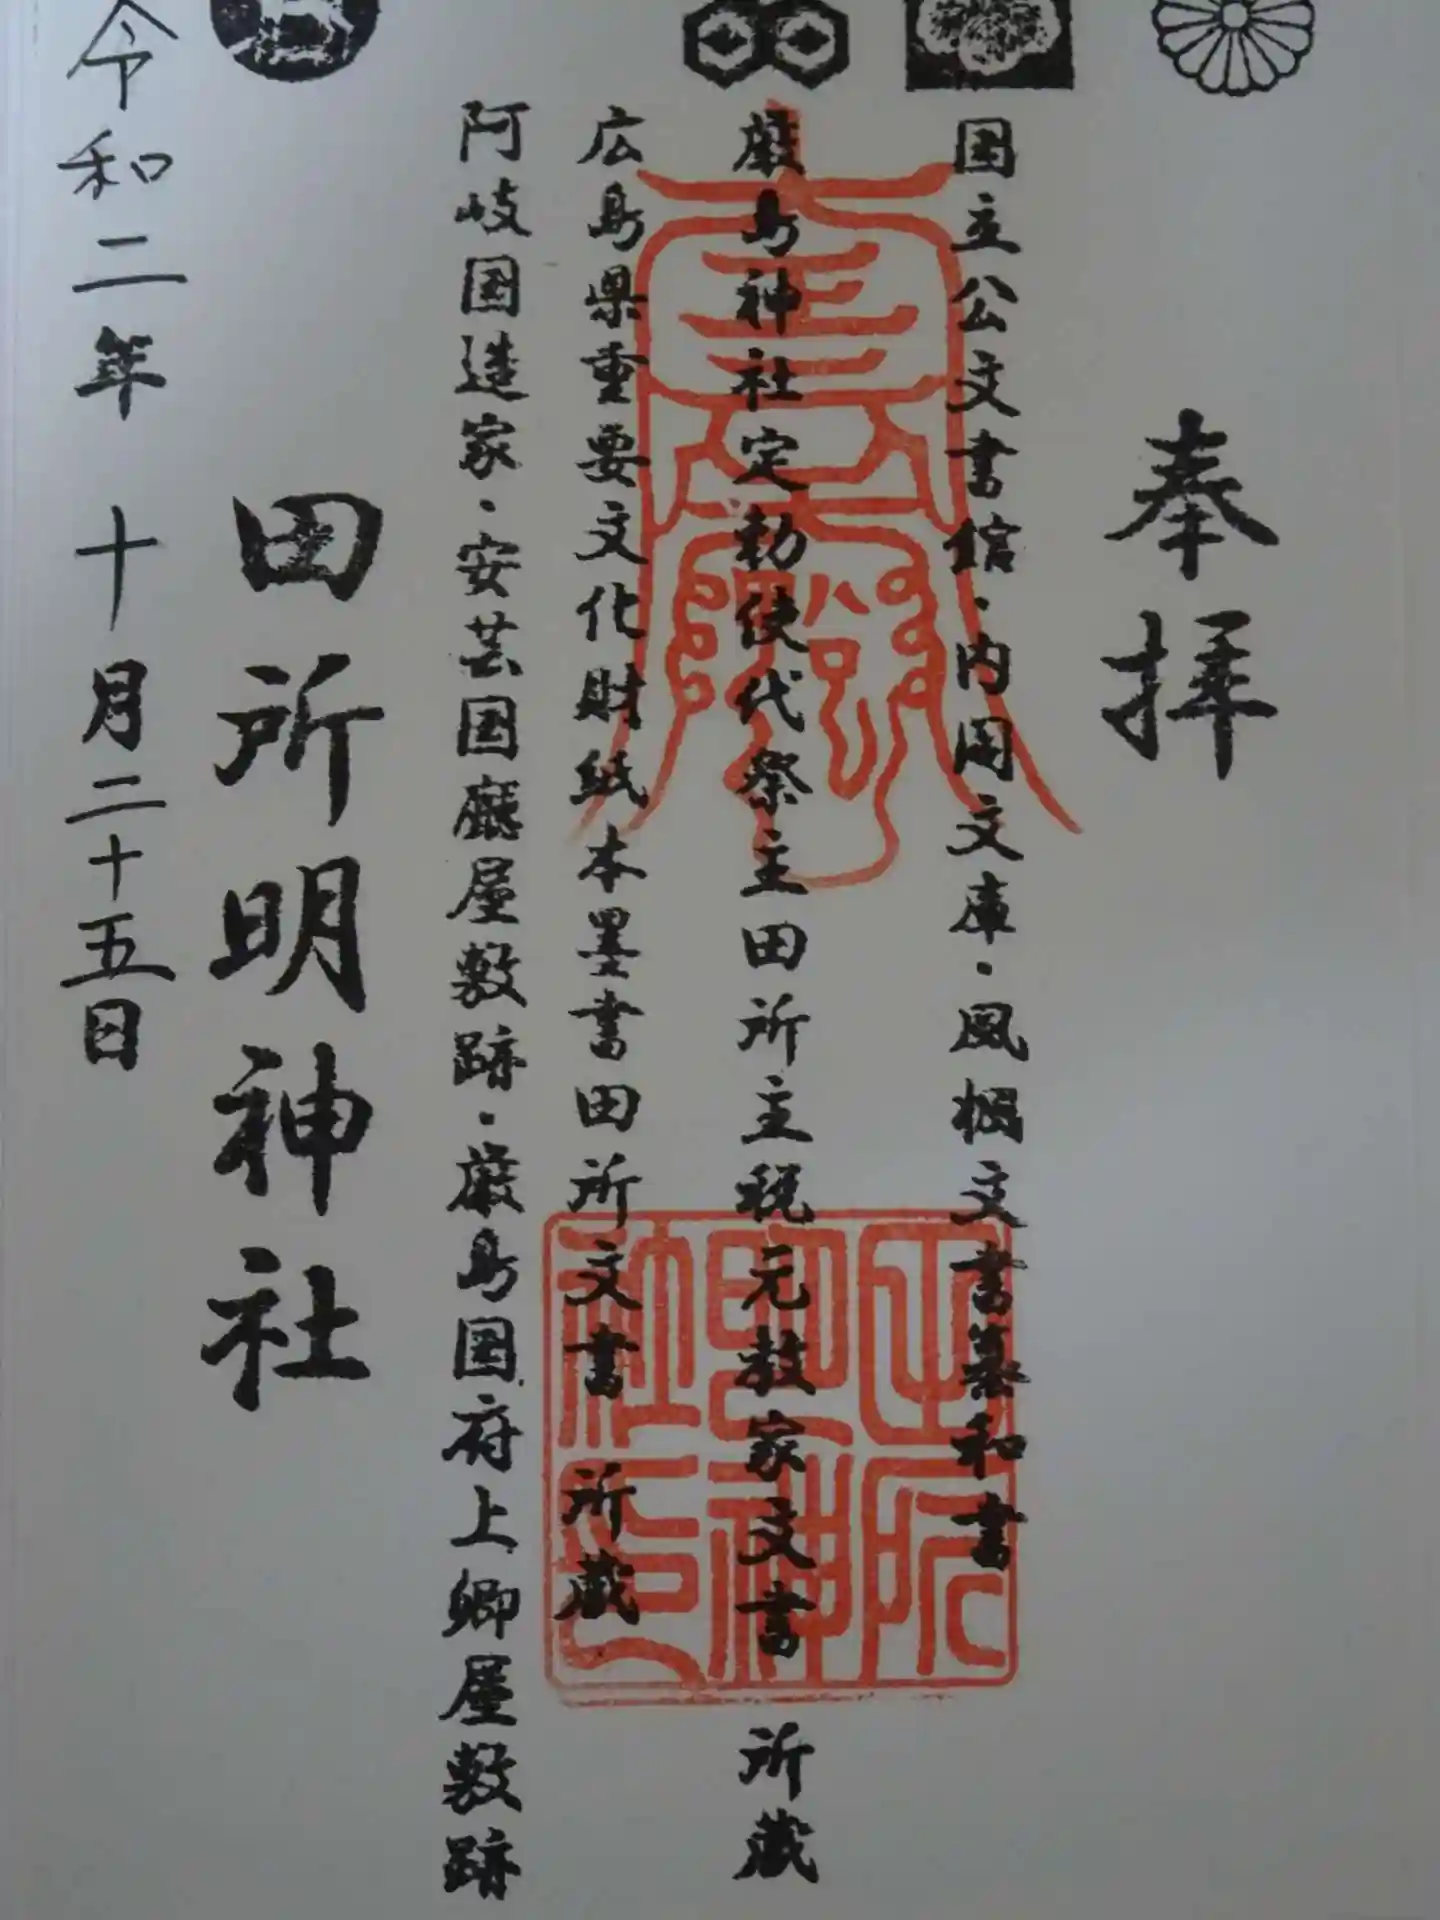 奉拝
国立公文書館・内閣文庫・風櫚文書纂和書
厳島神社定勅使代祭主田所主税元教家文書 所蔵
広島県重要文化財紙本墨書田所文書 所蔵
阿岐国造家・安芸国廳屋敷跡・厳島国府上卿屋敷跡
田所明神社
令和二年 十月二十五日